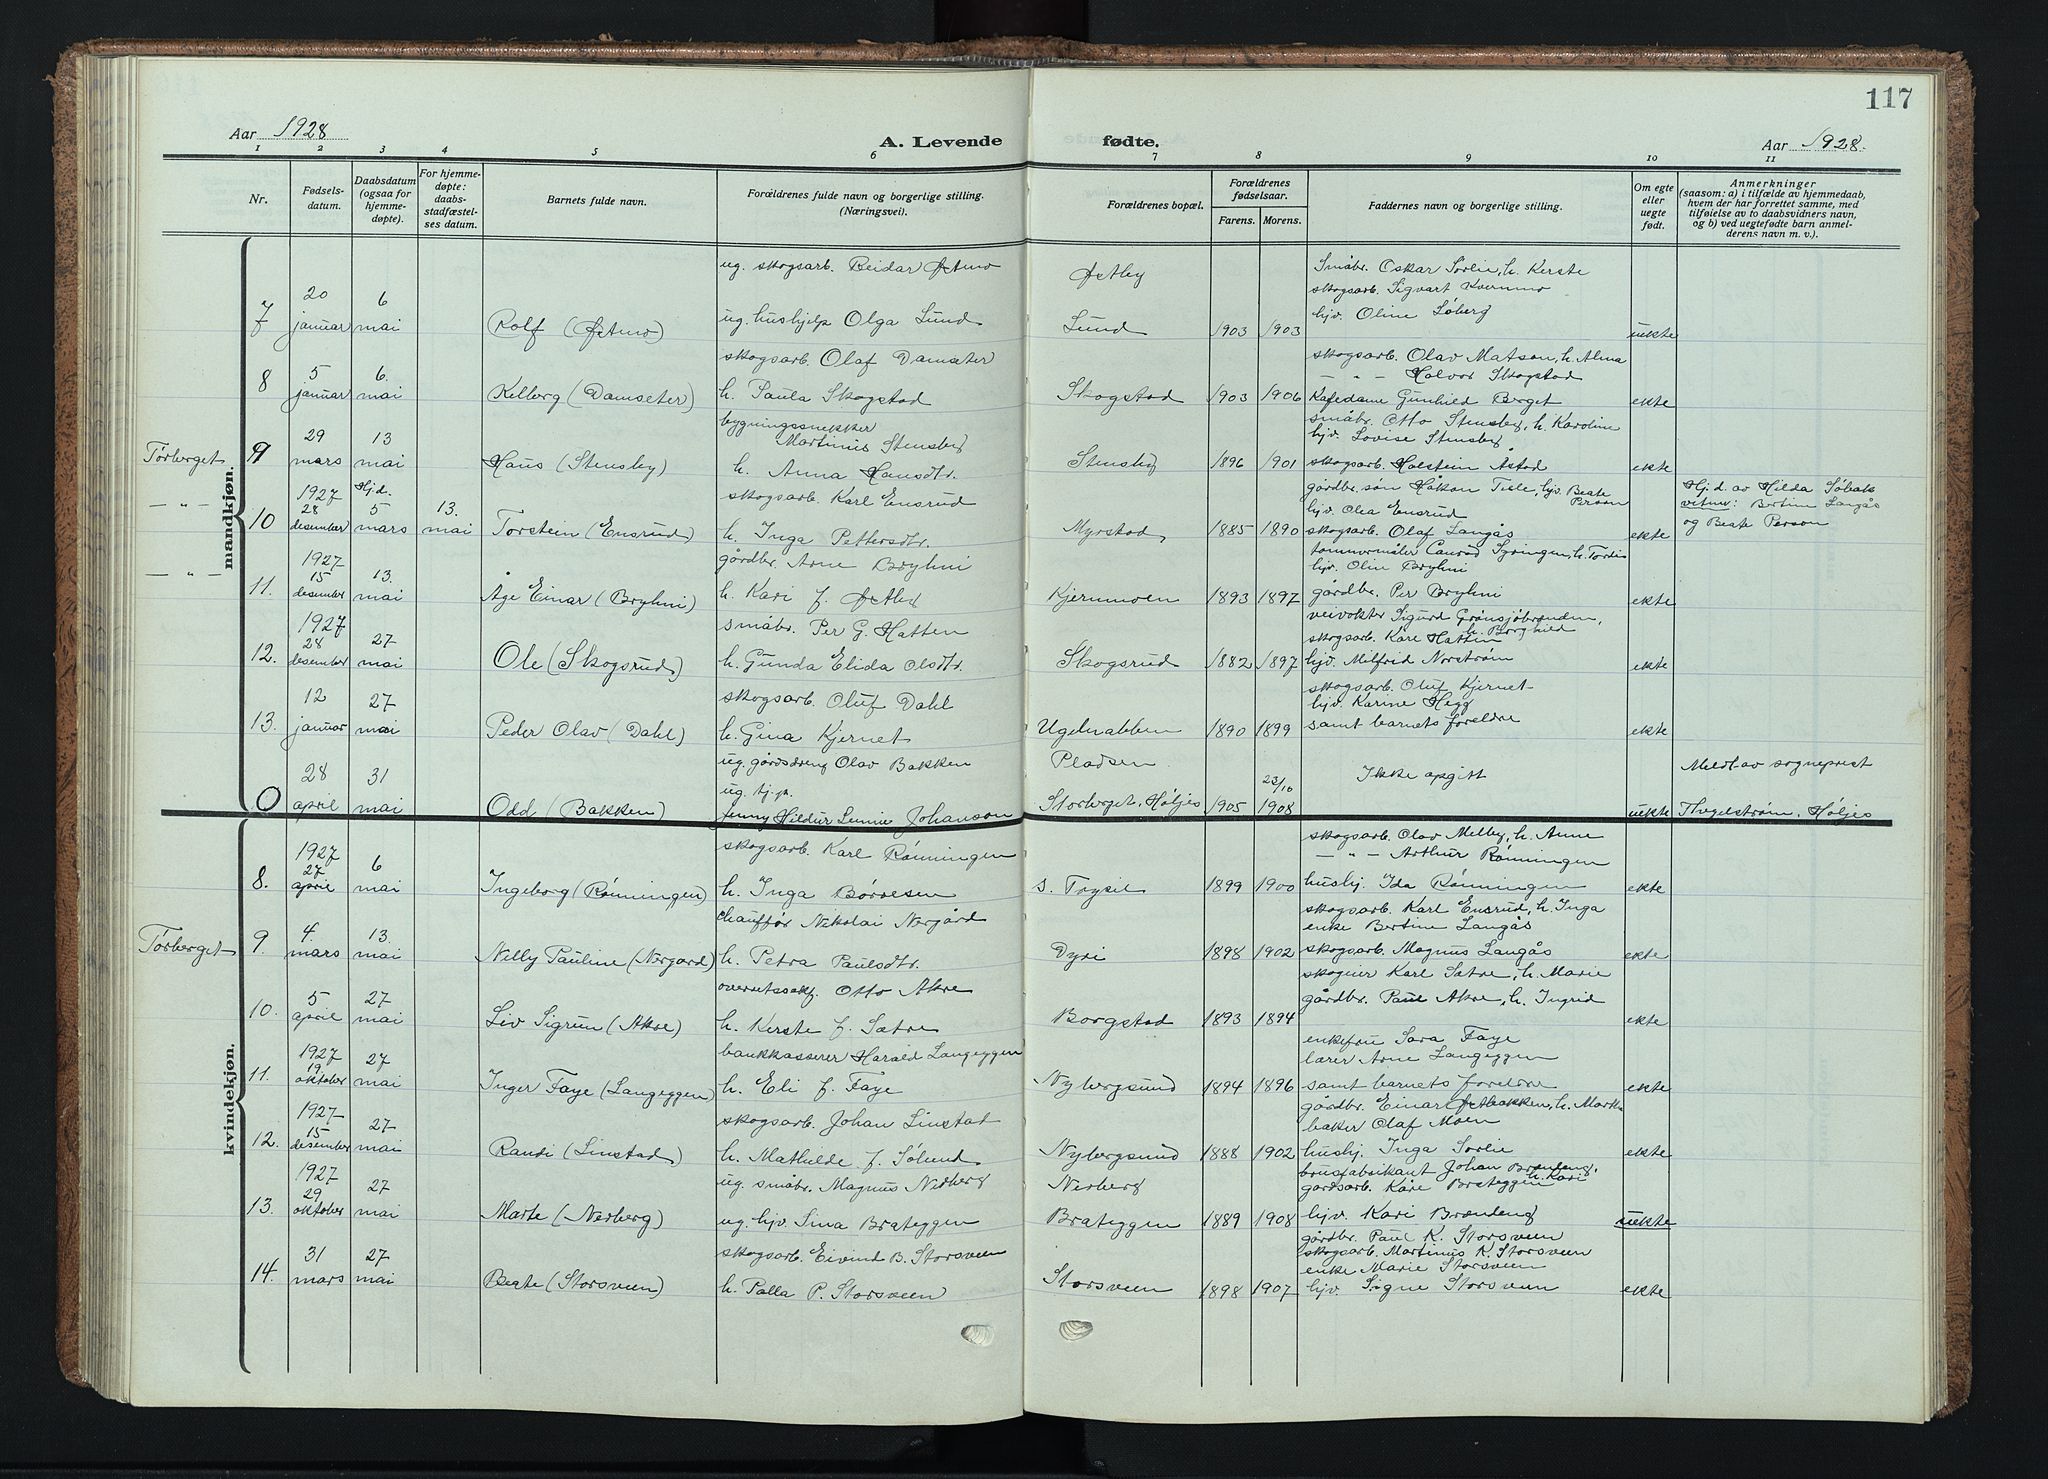 117
Aar 1928
A. Levende
fødte.
Aar 1928.
1 2 3 4 5 6 7 8 9 10 11
Nr.
Fødsels-
datum.
Daabsdatum
(ogsaa for
hjemme-
døpte).
For hjemme-
døpte:
daabs-
stadfæstel-
ses datum.
Barnets fulde navn.
Forældrenes fulde navn og borgerlige stilling.
(Næringsvei).
Forældrenes bopæl.
Forældrenes
fødselsaar.
Farens. Morens.
Faddernes navn og borgerlige stilling.
Om egte
eller
uegte
født.
Anmerkninger
(saasom: a) i tilfælde av hjemmedaab,
hvem der har forrettet samme, med
tilføielse av to daabsvidners navn,
og b) ved uegtefødte barn anmel-
derens navn m. v.).
mandkjøn.
ug. skogsarb. Reidar Østmo Østby Småbr. Oskar Sørlie, h. Kerste
skogsarb. Sigvart Kvernmo
7 20 januar 6 mai Rolf (Østmo) ug. hushjelp Olga Lund Lund 1903 1903 hjv. Oline Søberg uekte
skogsarb. Olaf Damseter skogsarb. Olav Matson, h. Alma
— " — Halvor Skogstad
8 5 januar 6. mai Kelberg (Damseter) h. Paula Skogstad Skogstad 1903 1906 Kafedame Gunhild Berget ekte
bygningssnekker småbr. Otto Stensby, h. Karoline
Martinus Stensby hjv. Lovise Stensby
Tørberget 9 29 mars 13 mai Hans (Stensby) h. Anna Hansdtr. Stensby 1896 1901 skogsarb. Holstein Åstad ekte
1927 Hj.d. skogsarb. Karl Ensrud gårdbr. søn Håkon Tisle, hjv. Beate Person Hj.d. av Hilda Søbak
hjv. Olea Ensrud vitner: Bertine Langås
— " — 10 28 desember 5 mars 13. mai Torstein (Ensrud) h. Inga Pettersdtr. Myrstad 1885 1890 skogsarb. Olaf Langås ekte og Beate Person
1927 gårdbr. Arne Bryhni tømmermåler Conrad Syringen, h. Tordis
hjv. Olin Bryhni
— " — 11. 15 desember 13. mai Åge Einar (Bryhni) h. Kari f. Østby Kjernmoen 1893 1897 gårdbr. Per Bryhni ekte
1927 småbr. Per G. Hatten veivokter Sigurd Grønsjøbrenden, h. Borghild
skogsarb. Kåre Hatten
12. 28 desember 27 mai Ole (Skogsrud) h. Gunda Elida Olsdtr. Skogsrud 1882 1897 hjv. Milfrid Norstrøm ekte
skogsarb. Oluf Dahl skogsarb. Oluf Kjernet
hjv. Karine Hegg
13. 12 januar 27 mai Peder Olav (Dahl) h. Gina Kjernet Ugelnabben 1890 1899 samt barnets foreldre ekte
ug. gårdsdreng Olav Bakken Pladsen Ikke opgitt Meldt av sogneprest
ug. tj.p. 23/10
0 28 april 31 mai Odd (Bakken) Jenny Hildur Linnie Johanson Storberget, Höljes 1905 1908 uekte Thegelstrøm, Höljes
kvindekjøn.
1927 skogsarb. Karl Rønningen skogsarb. Olav Melby, h. Anne
— " — Arthur Rønningen
8. 27 april 6 mai Ingeborg (Rønningen) h. Inga Børresen s. Trysil 1899 1900 hushj. Ida Rønningen ekte
chauffør Nikolai Norgård skogsarb. Karl Ensrud, h. Inga
enke Bertine Langås
Tørberget 9 4. mars 13. mai Nelly Pauline (Norgård) h. Petra Paulsdtr. Dyri 1898 1902 skogsarb. Magnus Langås ekte
overretssakf. Otto Akre skogeier Karl Sætre, h. Marie
gårdbr. Paul Akre, h. Ingrid
10. 5 april 27 mai Liv Sigrun (Akre) h. Kerste f. Sætre Borgstad 1893 1894 ekte
1927 bankkasserer Harald Langeggen enkefru Sara Faye
lærer Arne Langeggen
11. 19 oktober 27 mai Inger Faye (Langeggen) h. Eli f. Faye Nybergsund 1894 1896 samt barnets foreldre ekte
1927 skogsarb. Johan Linstad gårdbr. Einar Østbakken, h. Marthe
baker Olaf Moen
12. 15 desember 27 mai Randi (Linstad) h. Mathilde f. Sølund Nybergsund 1888 1902 hushj. Inga Sørlie ekte
1927 ug. småbr. Magnus Nerberg Nerberg brusfabrikant Johan Brendeng, h. Kari
gårdsarb. Kåre Brateggen
13. 29 oktober 27 mai Marte (Nerberg) ug. hjv. Lina Brateggen Brateggen 1889 1908 hjv. Kari Brendeng uekte
gårdbr. Paul K. Storsveen
skogsarb. Eivind B. Storsveen skogsarb. Martinus K. Storsveen
enke Marie Storsveen
14. 31 mars 27 mai Beate (Storsveen) h. Palla P. Storsveen Storsveen 1898 1907 hjv. Signe Storsveen ekte